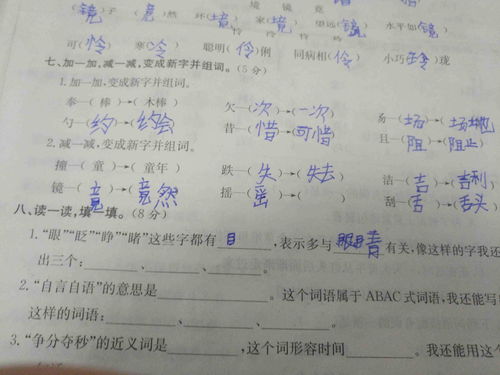 境 镜 竟
(镜)子 (竟)然 环(境) 家(境) 望远(镜) 水平如(镜)
怜 伶 玲 冷
可(怜) 寒(冷) 聪明(伶)俐 同病相(伶) 小巧(玲)珑
七、加一加,减一减,变成新字并组词。(5分)
1.加一加,变成新字并组词。
奉—(棒)→(木棒) 欠—(次)→(一次) 昜—(场)→(场地)
勺—(约)→(约会) 昔—(惜)→(可惜) 且—(阻)→(阻止)
2.减一减,变成新字并组词。
撞—(童)→(童年) 跌—(失)→(失去) 洁—(吉)→(吉利)
镜—(竟)→(竟然) 摇—(䍃)→( ) 刮—(舌)→(舌头)
八、读一读,填一填。(8分)
1.“眼”“眨”“睁”“睹”这些字都有目,表示多与眼睛有关,像这样的字我还
出三个:______、______、______。
2.“自言自语”的意思是______。这个词语属于ABAC式词语,我还能写
这样的词语:______、______、______。
3.“争分夺秒”的近义词是______,这个词形容时间______。我还能用这个